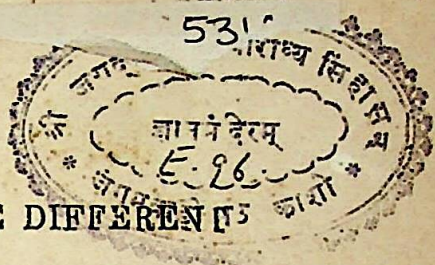 531
श्री जगद् राध्य सिंहासन
ज्ञानमंदिरम्
E.96.
* काशी *
DIFFERENT